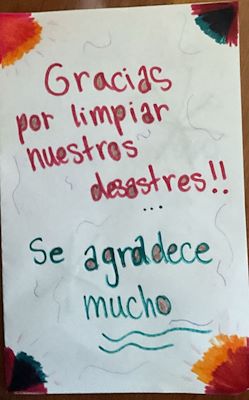 Gracias
por limpiar
nuestros
desastres!!
...
Se agradece
mucho